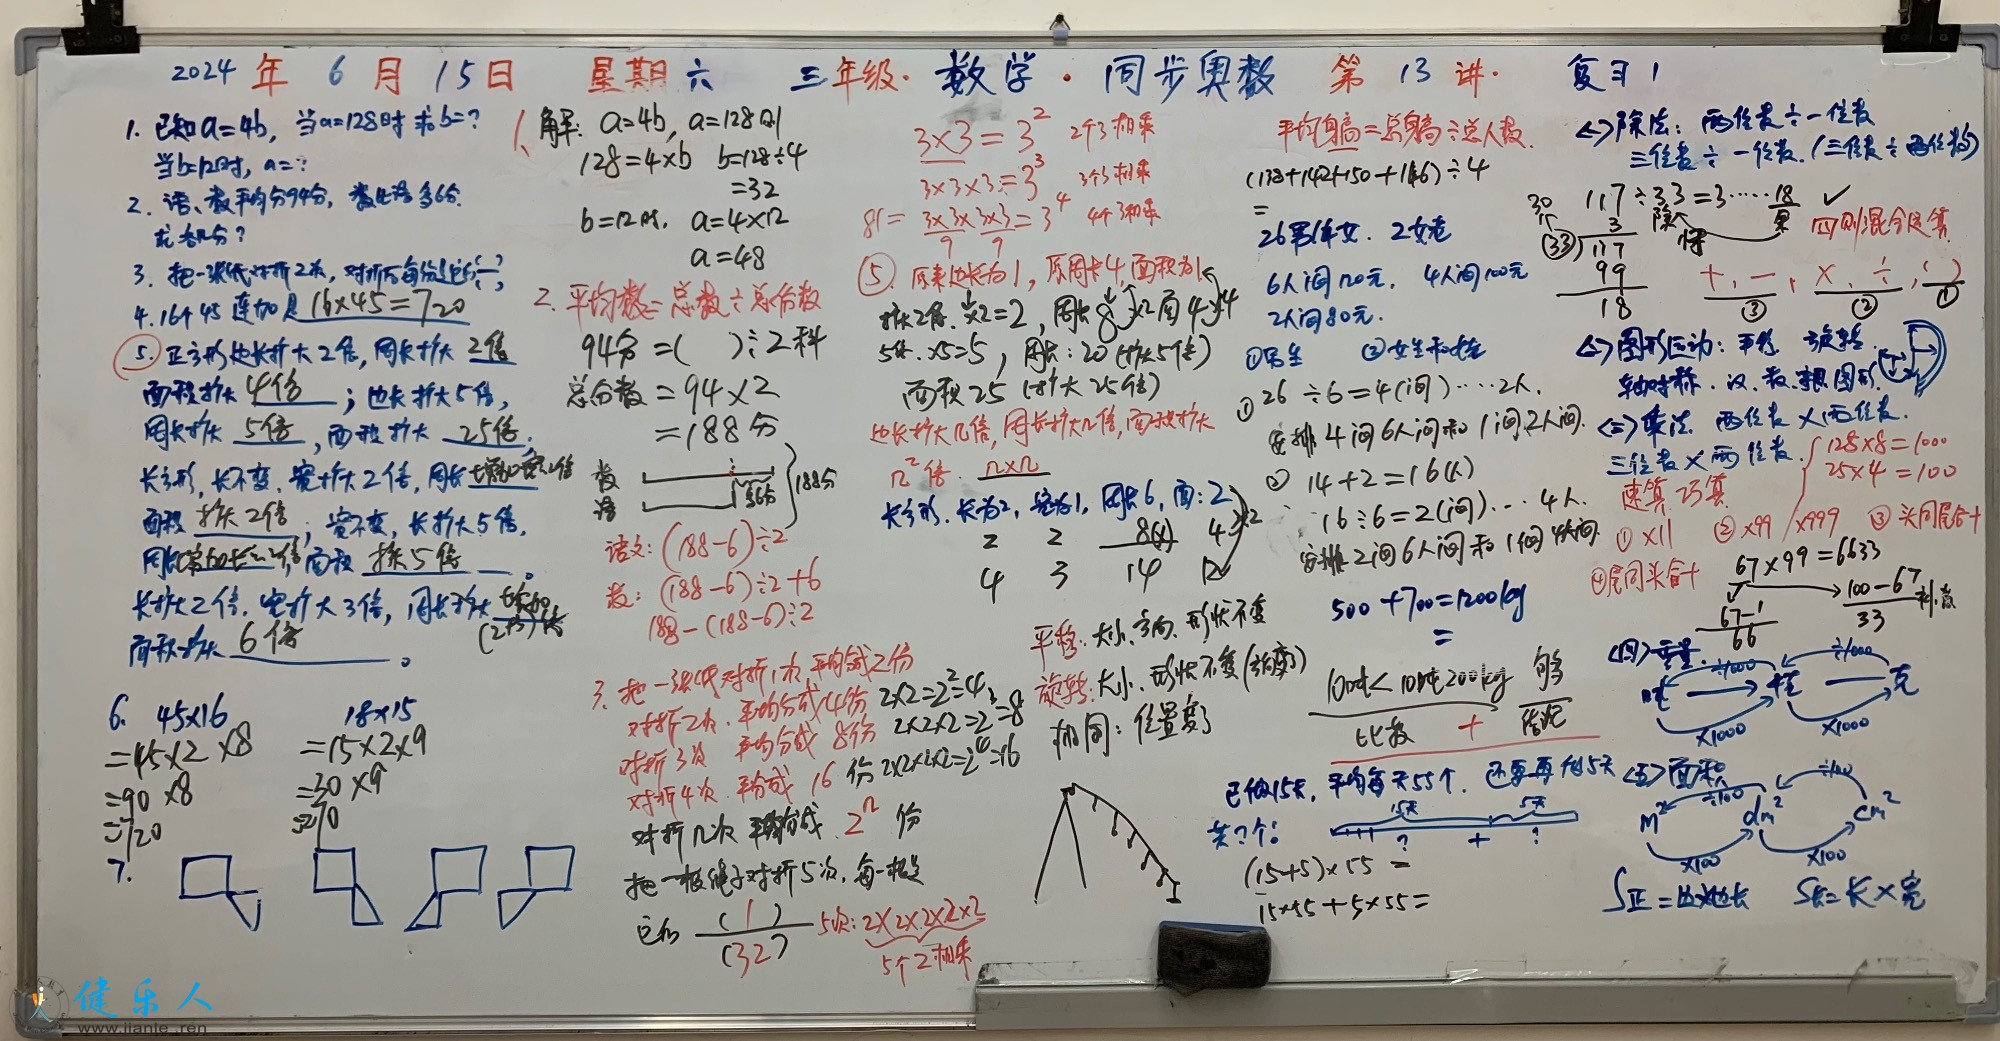 2024年6月15日 星期六 三年级·数学·同步奥数 第13讲· 复习1
1. 已知a=4b, 当a=128时 求b=?
当b=12时, a=?
2. 语、数平均分94分, 数比语多6分.
求各几分?
3. 把一张纸对折2次, 对折后每份是它的
4. 16个45连加是 16×45=720
5. 正方形边长扩大2倍, 周长扩大 2倍
面积扩大 4倍 ; 边长扩大5倍,
周长扩大 5倍 , 面积扩大 25倍 .
长方形, 长不变, 宽扩大2倍, 周长
面积 扩大2倍 ; 宽不变, 长扩大5倍,
面积 扩大5倍 。
长扩大2倍, 宽扩大3倍, 周长扩大 增加
面积扩大 6倍 。
6. 45×16
=45×2×8
=90×8
=720
18×15
=15×2×9
=30×9
=270
7.
1. 解: a=4b, a=128时
128=4×b b=128÷4
=32
b=12时, a=4×12
a=48
2. 平均数=总数÷总份数
94分=( )÷2科
总分数=94×2
=188分
数
语
多6分
188分
语文: (188-6)÷2
数: (188-6)÷2+6
188-(188-6)÷2
3. 把一张纸对折1次, 平均分成2份
对折2次, 平均分成4份 2×2=2²=4
对折3次 平均分成8份 2×2×2=2³=8
对折4次, 平均分成 16 份 2×2×2×2=2⁴=16
对折n次 平均分成 2ⁿ 份
把一根绳子对折5次, 每一根是
它的 (1)/(32) 5次: 2×2×2×2×2
5个2相乘
3×3=3² 2个3相乘
3×3×3=3³ 3个3相乘
81=3×3×3×3=3⁴ 4个3相乘
9 9
⑤. 原来边长为1, 原周长4, 面积为1
扩大2倍, ×2=2, 周长8 ×2 面4 ×4
5倍, ×5=5, 周长: 20 (扩大5倍)
面积25 (扩大25倍)
边长扩大几倍, 周长扩大几倍, 面积扩大
n²倍. n×n
长方形, 长为2, 宽为1, 周长6, 面: 2
2 2 8 4 ×2
4 3 14 12
平移: 大小、方向、形状不变
旋转: 大小、形状不变
相同: 位置变了
平均身高=总身高÷总人数.
(138+142+150+146)÷4
=
6人间120元, 4人间100元
2人间80元.
①男生
① 26÷6=4(间)····2人.
安排4间6人间和1间2人间.
② 14+2=16(人)
16÷6=2(间)··· 4人.
安排2间6人间和1间4人间.
500+700=1200kg
=
10吨<10吨200kg 够
比较 + 结论
已做15天, 平均每天55个, 还要再做5天
共?个:
15天 5天
? + ?
(15+5)×55=
15×55+5×55=
<一>除法: 两位数÷一位数
三位数÷一位数. (三位数÷两位数)
117÷33=3·····18 ✓
30
3
33 117
99
18
四则混合运算
+, -, ×, ÷, ( )
③ ② ①
<二>图形运动: 平移、旋转.
<三>乘法 两位数×两位数.
三位数×两位数.
125×8=1000
25×4=100
速算巧算
①×11 ②×99/×999 ③头同尾合十
④尾同头合十
67×99=6633
67-1
66
100-67
33
<四>重量.
吨 千克 克
÷1000 ÷1000
×1000 ×1000
<五>面积
m² dm² cm²
÷100 ÷100
×100 ×100
S正=边长×边长 S长=长×宽
健乐人
www.jianle.ren